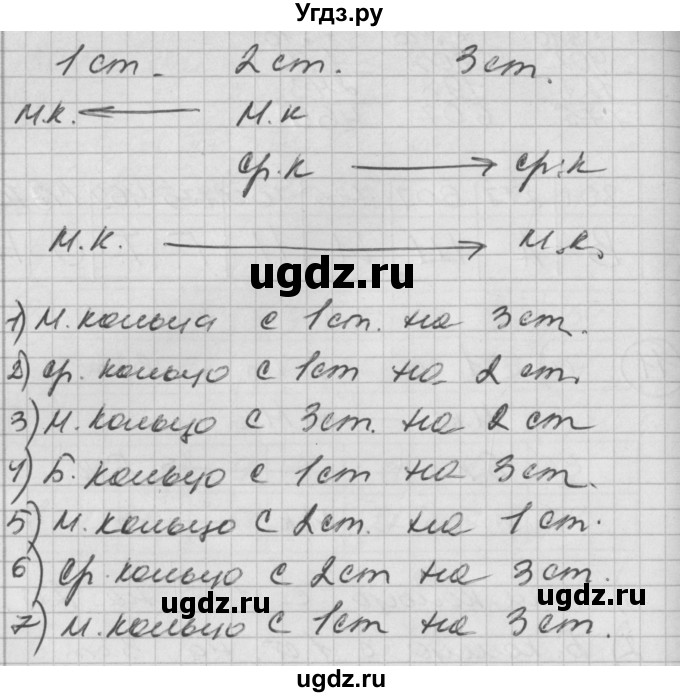 Угдз.ру
1 ст. 2 ст. 3 ст.
м.к. м.к
ср.к ср.к
м.к. м.к.
ugdz.ru
1) м. кольца с 1 ст. на 3 ст.
2) ср. кольцо с 1 ст на 2 ст.
3) м. кольцо с 3 ст. на 2 ст
4) Б. кольцо с 1 ст на 3 ст.
5) м. кольцо с 2 ст. на 1 ст.
6) ср. кольцо с 2 ст на 3 ст.
ugdz.ru ugdz.ru
7) м. кольцо с 1 ст на 3 ст.
ugdz.ru